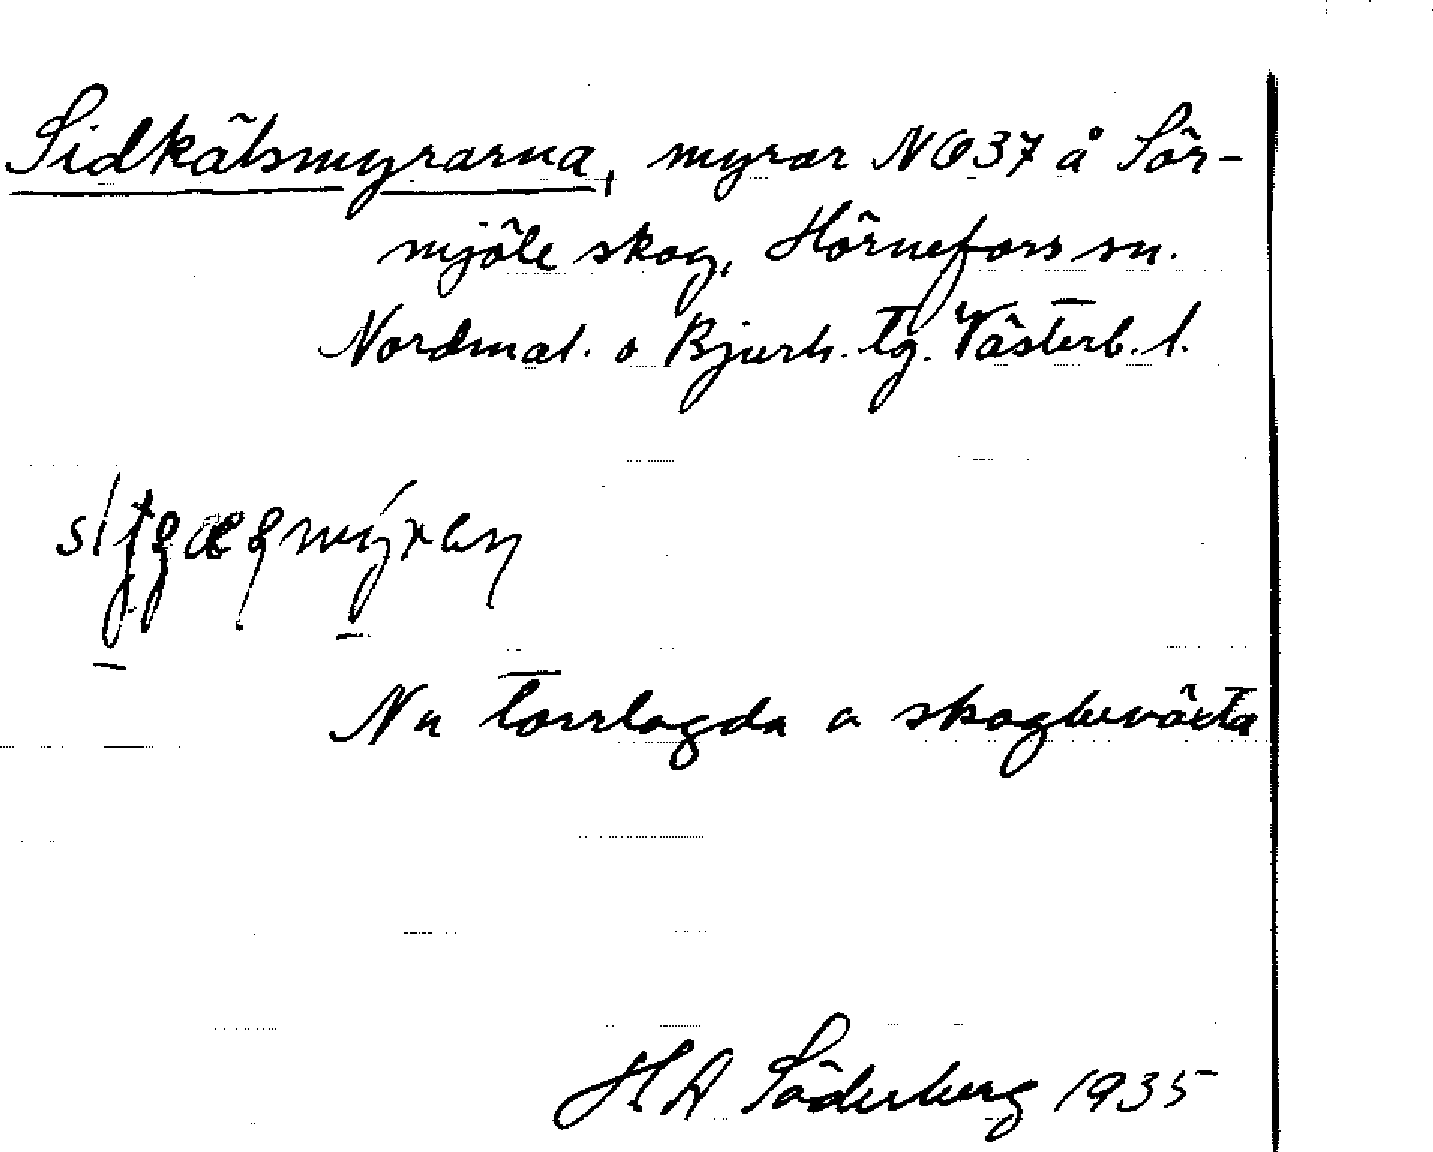 Sidkälsmyrarna, myrar NO37 å Sör-
mjöle skog, Hörnefors sn.
Nordmal. o Bjurh. tg. Västerb. l.
Nu torrlagda o skogbeväxta
H A Söderberg 1935